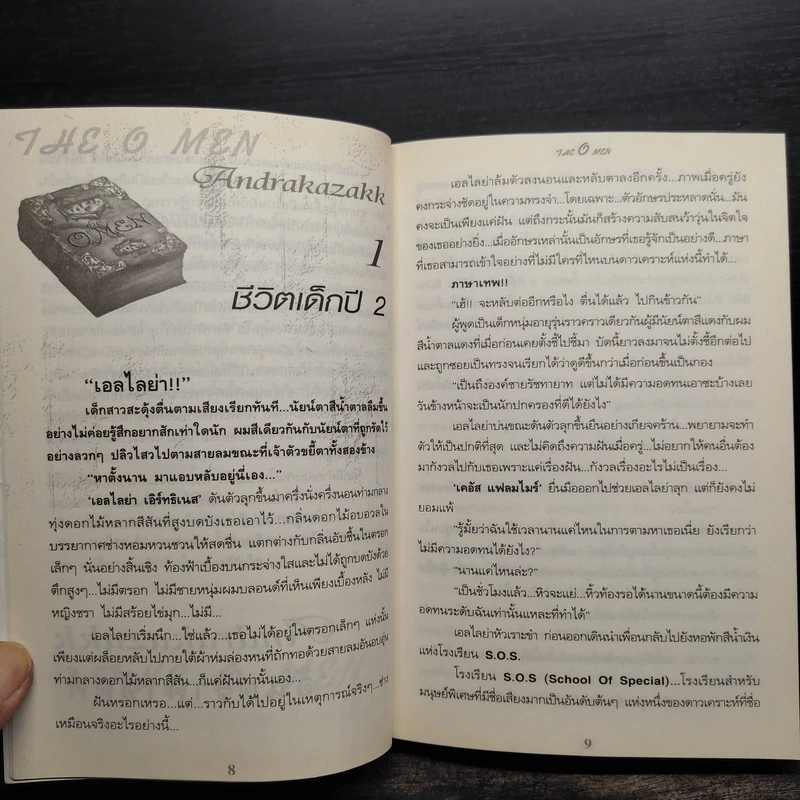 THE O MEN
Andrakazakk
OMEN
1
ชีวิตเด็กปี 2
“เอลไลย่า!!”
เด็กสาวสะดุ้งตื่นตามเสียงเรียกทันที...นัยน์ตาสีน้ำตาลลืมขึ้น
อย่างไม่ค่อยรู้สึกอยากสักเท่าใดนัก ผมสีเดียวกันกับนัยน์ตาที่ถูกรัดไว้
อย่างลวกๆ ปลิวไสวไปตามสายลมขณะที่เจ้าตัวขยี้ตาทั้งสองข้าง
“หาตั้งนาน มาแอบหลับอยู่นี่เอง...”
‘เอลไลย่า เอิร์ทธิเนส’ ดันตัวลุกขึ้นมาครึ่งนั่งครึ่งนอนท่ามกลาง
ทุ่งดอกไม้หลากสีสันที่สูงบดบังเธอเอาไว้...กลิ่นดอกไม้อบอวลใน
บรรยากาศช่างหอมหวนชวนให้สดชื่น แตกต่างกับกลิ่นอับชื้นในตรอก
เล็กๆ นั่นอย่างสิ้นเชิง ท้องฟ้าเบื้องบนกระจ่างใสและไม่ได้ถูกบดบังด้วย
ตึกสูงๆ...ไม่มีตรอก ไม่มีชายหนุ่มผมบลอนด์ที่เห็นเพียงเบื้องหลัง ไม่มี
หญิงชรา ไม่มีสร้อยไข่มุก...ไม่มี...
เอลไลย่าเริ่มนึก...ใช่แล้ว...เธอไม่ได้อยู่ในตรอกเล็กๆ แห่งนั้น
เพียงแต่ผล็อยหลับไปภายใต้ผ้าห่มล่องหนที่ถักทอด้วยสายลมอันอบอุ่น
ท่ามกลางดอกไม้หลากสีสัน...ก็แค่ฝันเท่านั้นเอง...
ฝันหรอกเหรอ...แต่...ราวกับได้ไปอยู่ในเหตุการณ์จริงๆ...ช่าง
เหมือนจริงอะไรอย่างนี้...
8
THE O MEN
เอลไลย่าล้มตัวลงนอนและหลับตาลงอีกครั้ง...ภาพเมื่อครู่ยัง
คงกระจ่างชัดอยู่ในความทรงจำ...โดยเฉพาะ...ตัวอักษรประหลาดนั่น...มัน
คงจะเป็นเพียงแค่ฝัน แต่ถึงกระนั้นมันก็สร้างความสับสนว้าวุ่นในจิตใจ
ของเธออย่างยิ่ง...เมื่ออักษรเหล่านั้นเป็นอักษรที่เธอรู้จักเป็นอย่างดี...ภาษา
ที่เธอสามารถเข้าใจอย่างที่ไม่มีใครที่ไหนบนดาวเคราะห์แห่งนี้ทำได้...
ภาษาเทพ!!
“เฮ้!! จะหลับต่ออีกหรือไง ตื่นได้แล้ว ไปกินข้าวกัน”
ผู้พูดเป็นเด็กหนุ่มอายุรุ่นราวคราวเดียวกันผู้มีนัยน์ตาสีแดงกับผม
สีน้ำตาลแดงที่เมื่อก่อนเคยตั้งชี้ไปชี้มา บัดนี้ยาวลงมาจนไม่ตั้งชี้อีกต่อไป
และถูกซอยเป็นทรงจนเรียกได้ว่าดูดีขึ้นกว่าเมื่อก่อนขึ้นเป็นกอง
“เป็นถึงองค์ชายรัชทายาท แต่ไม่ได้มีความอดทนเอาซะบ้างเลย
วันข้างหน้าจะเป็นนักปกครองที่ดีได้ยังไง”
เอลไลย่าบ่นขณะดันตัวลุกขึ้นยืนอย่างเกียจคร้าน...พยายามจะทำ
ตัวให้เป็นปกติที่สุด และไม่คิดถึงความฝันเมื่อครู่...ไม่อยากให้คนอื่นต้อง
มากังวลไปกับเธอเพราะแค่เรื่องฝัน...กังวลเรื่องอะไรไม่เป็นเรื่อง...
‘เคอัส แฟลมไมร์’ ยื่นมือออกไปช่วยเอลไลย่าลุก แต่ก็ยังคงไม่
ยอมแพ้
“รู้มั้ยว่าฉันใช้เวลานานแค่ไหนในการตามหาเธอเนี่ย ยังเรียกว่า
ไม่มีความอดทนได้ยังไง?”
“นานแค่ไหนล่ะ?”
“เป็นชั่วโมงแล้ว...หิวจะแย่...หิ้วท้องรอได้นานขนาดนี้ต้องมีความ
อดทนระดับฉันเท่านั้นแหละที่ทำได้”
เอลไลย่าหัวเราะขำ ก่อนออกเดินนำเพื่อนกลับไปยังหอพักสีน้ำเงิน
แห่งโรงเรียน S.O.S.
โรงเรียน S.O.S (School Of Special)...โรงเรียนสำหรับ
มนุษย์พิเศษที่มีชื่อเสียงมากเป็นอันดับต้นๆ แห่งหนึ่งของดาวเคราะห์ที่ชื่อ
9